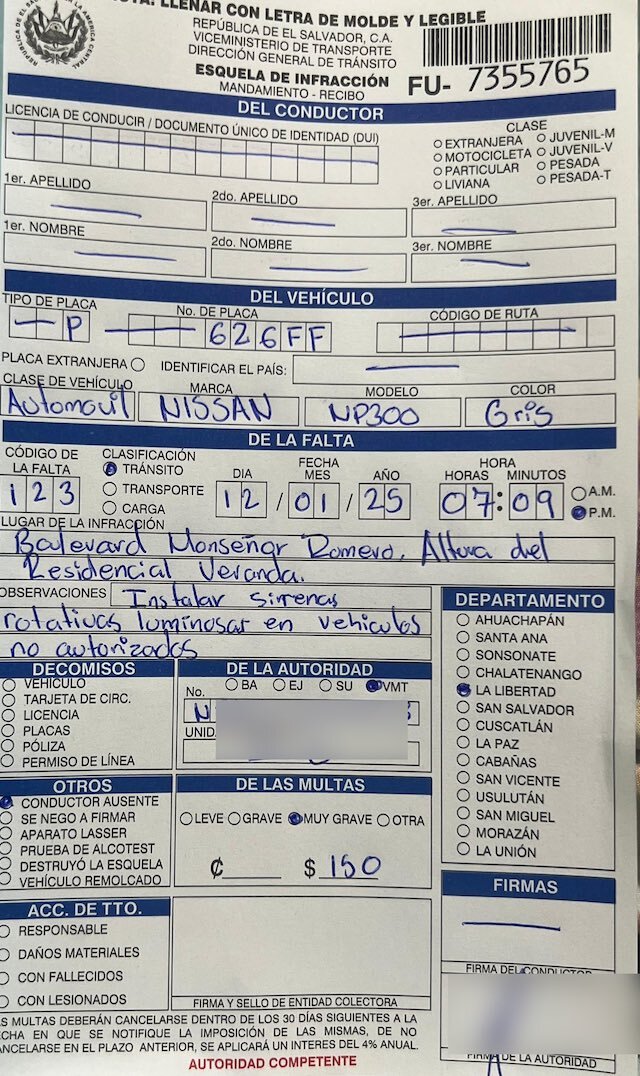 NOTA: LLENAR CON LETRA DE MOLDE Y LEGIBLE
REPÚBLICA DE EL SALVADOR, C.A.
VICEMINISTERIO DE TRANSPORTE
DIRECCIÓN GENERAL DE TRÁNSITO
ESQUELA DE INFRACCIÓN
MANDAMIENTO - RECIBO
FU- 7355765
DEL CONDUCTOR
LICENCIA DE CONDUCIR / DOCUMENTO ÚNICO DE IDENTIDAD (DUI)
CLASE
EXTRANJERA JUVENIL-M
MOTOCICLETA JUVENIL-V
PARTICULAR PESADA
LIVIANA PESADA-T
1er. APELLIDO 2do. APELLIDO 3er. APELLIDO
1er. NOMBRE 2do. NOMBRE 3er. NOMBRE
DEL VEHÍCULO
TIPO DE PLACA No. DE PLACA CÓDIGO DE RUTA
P 626FF
PLACA EXTRANJERA IDENTIFICAR EL PAÍS:
CLASE DE VEHÍCULO MARCA MODELO COLOR
Automovil NISSAN NP300 Gris
DE LA FALTA
CÓDIGO DE LA FALTA
123
CLASIFICACIÓN
TRÁNSITO
TRANSPORTE
CARGA
FECHA
DIA MES AÑO
12/01/25
HORA
HORAS MINUTOS
07:09
A.M.
P.M.
LUGAR DE LA INFRACCIÓN
Boulevard Monseñor Romero. Altura del
Residencial Veranda.
OBSERVACIONES Instalar sirrenas
rotativas luminosas en vehiculos
no autorizados
DECOMISOS
VEHÍCULO
TARJETA DE CIRC.
LICENCIA
PLACAS
PÓLIZA
PERMISO DE LÍNEA
DE LA AUTORIDAD
No. BA EJ SU VMT
N
UNID
DEPARTAMENTO
AHUACHAPÁN
SANTA ANA
SONSONATE
CHALATENANGO
LA LIBERTAD
SAN SALVADOR
CUSCATLÁN
LA PAZ
CABAÑAS
SAN VICENTE
USULUTÁN
SAN MIGUEL
MORAZÁN
LA UNIÓN
OTROS
CONDUCTOR AUSENTE
SE NEGO A FIRMAR
APARATO LASSER
PRUEBA DE ALCOTEST
DESTRUYÓ LA ESQUELA
VEHÍCULO REMOLCADO
DE LAS MULTAS
LEVE GRAVE MUY GRAVE OTRA
₡ $ 150
ACC. DE TTO.
RESPONSABLE
DAÑOS MATERIALES
CON FALLECIDOS
CON LESIONADOS
FIRMA Y SELLO DE ENTIDAD COLECTORA
FIRMAS
FIRMA DEL CONDUCTOR
FIRMA DE LA AUTORIDAD
LAS MULTAS DEBERÁN CANCELARSE DENTRO DE LOS 30 DÍAS SIGUIENTES A LA
FECHA EN QUE SE NOTIFIQUE LA IMPOSICIÓN DE LAS MISMAS, DE NO
CANCELARSE EN EL PLAZO ANTERIOR, SE APLICARÁ UN INTERES DEL 4% ANUAL.
AUTORIDAD COMPETENTE